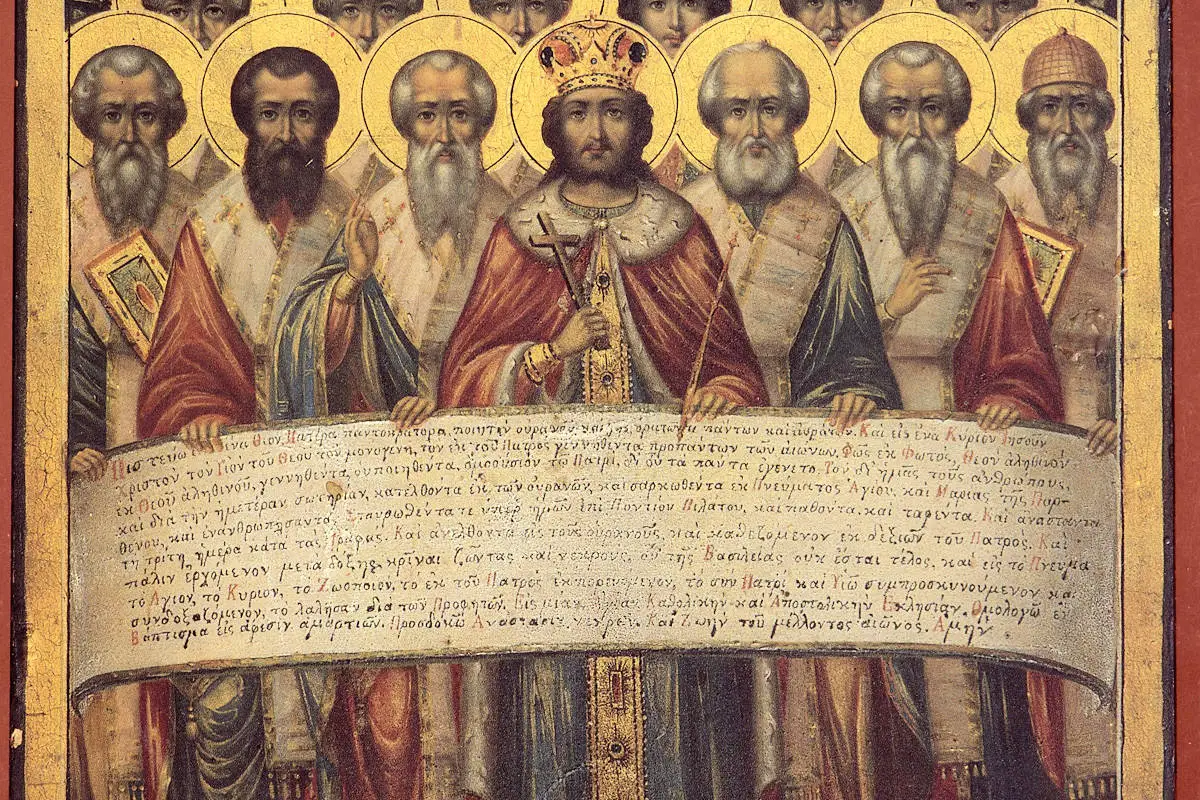 Πιστεύω εἰς ἕνα Θεόν, Πατέρα παντοκράτορα, ποιητήν ουρανού, καί γης, ορατών τε πάντων και αοράτων. Και εις ένα Κύριον Ιησούν
Χριστόν τόν Υιόν τού Θεού τόν μονογενή, τόν εκ τού Πατρός γεννηθέντα πρό πάντων τών αιώνων. Φώς εκ Φωτός, Θεόν αληθινόν
εκ Θεού αληθινού, γεννηθέντα, ού ποιηθέντα, ομοούσιον τώ Πατρί, δι ού τα πάντα εγένετο. Τον δι ημάς τούς ανθρώπους,
και δια την ημετέραν σωτηρίαν, κατελθοντα εκ τών ουρανών, καί σαρκωθεντα εκ Πνεύματος Αγίου, και Μαρίας τής Παρ-
θένου, και ενανθρωπήσαντα. Σταυρωθέντα τε υπέρ ημών επί Ποντίου Πιλάτου, και παθόντα, και ταφέντα. Και αναστάντα
τη τρίτη ημέρα κατά τας Γραφάς. Και ανελθόντα εις τούς ουρανούς, και καθεζομενον εκ δεξιών τού Πατρός. Και
πάλιν ερχόμενον μετά δόξης κρίναι ζώντας και νεκρούς, ού της Βασιλείας ουκ έσται τέλος. και εις το Πνεύμα
το Άγιον, το Κυριον, το Ζωοποιον, το εκ τού Πατρός εκπορευομενον, το συν Πατρί και Υιώ συμπροσκυνούμενον και
συνδοξαζόμενον, τό λαλήσαν δια των Προφητών. Εις μιαν Αγίαν Καθολικήν και Αποστολικήν Εκκλησίαν. Ομολογώ έν
Βάπτισμα εις άφεσιν αμαρτιών. Προσδοκώ Ανάστασιν νεκρών. Και Ζωήν τού μέλλοντος αιώνος. Αμήν.